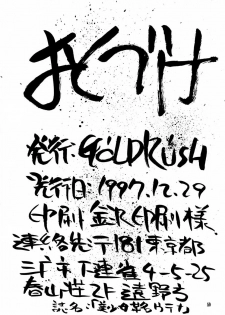 おくづけ
発行・GOLDRUSH
発行日：1997.12.29
印刷 金沢印刷様
連絡先〒181東京都
三鷹市下連雀4-5-25
春山荘2F 遠野方
誌名：「美少女革命ウテナ」